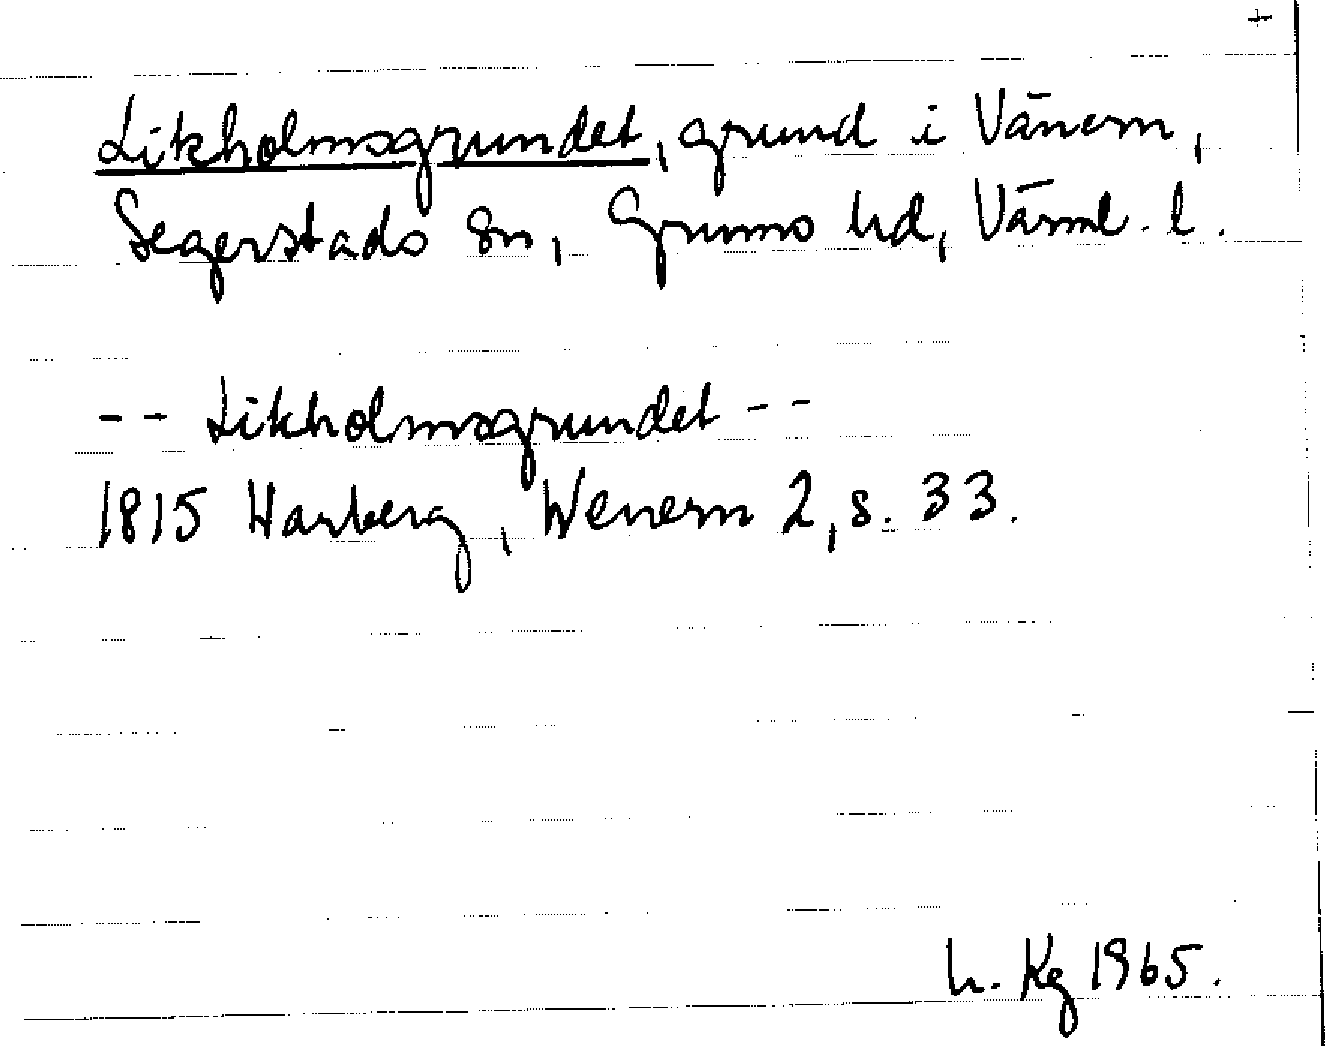 +
Likholmsgrundet, grund i Vänern,
Segerstads sn, Grums hd, Värml. l.
-- Likholmsgrundet --
1815 Warberg, Wenern 2, s. 33.
h. Kg 1965.